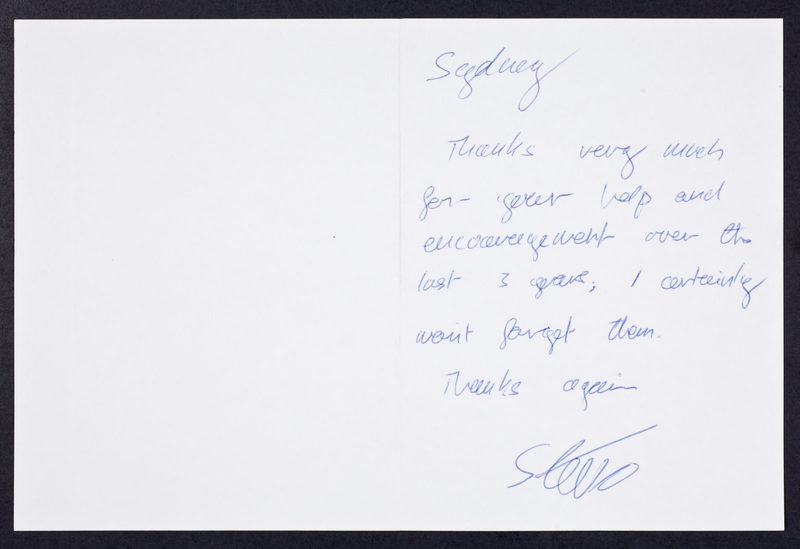 Sydney
Thanks very much
for your help and
encouragement over the
last 3 years; I certainly
won't forget them.
Thanks again